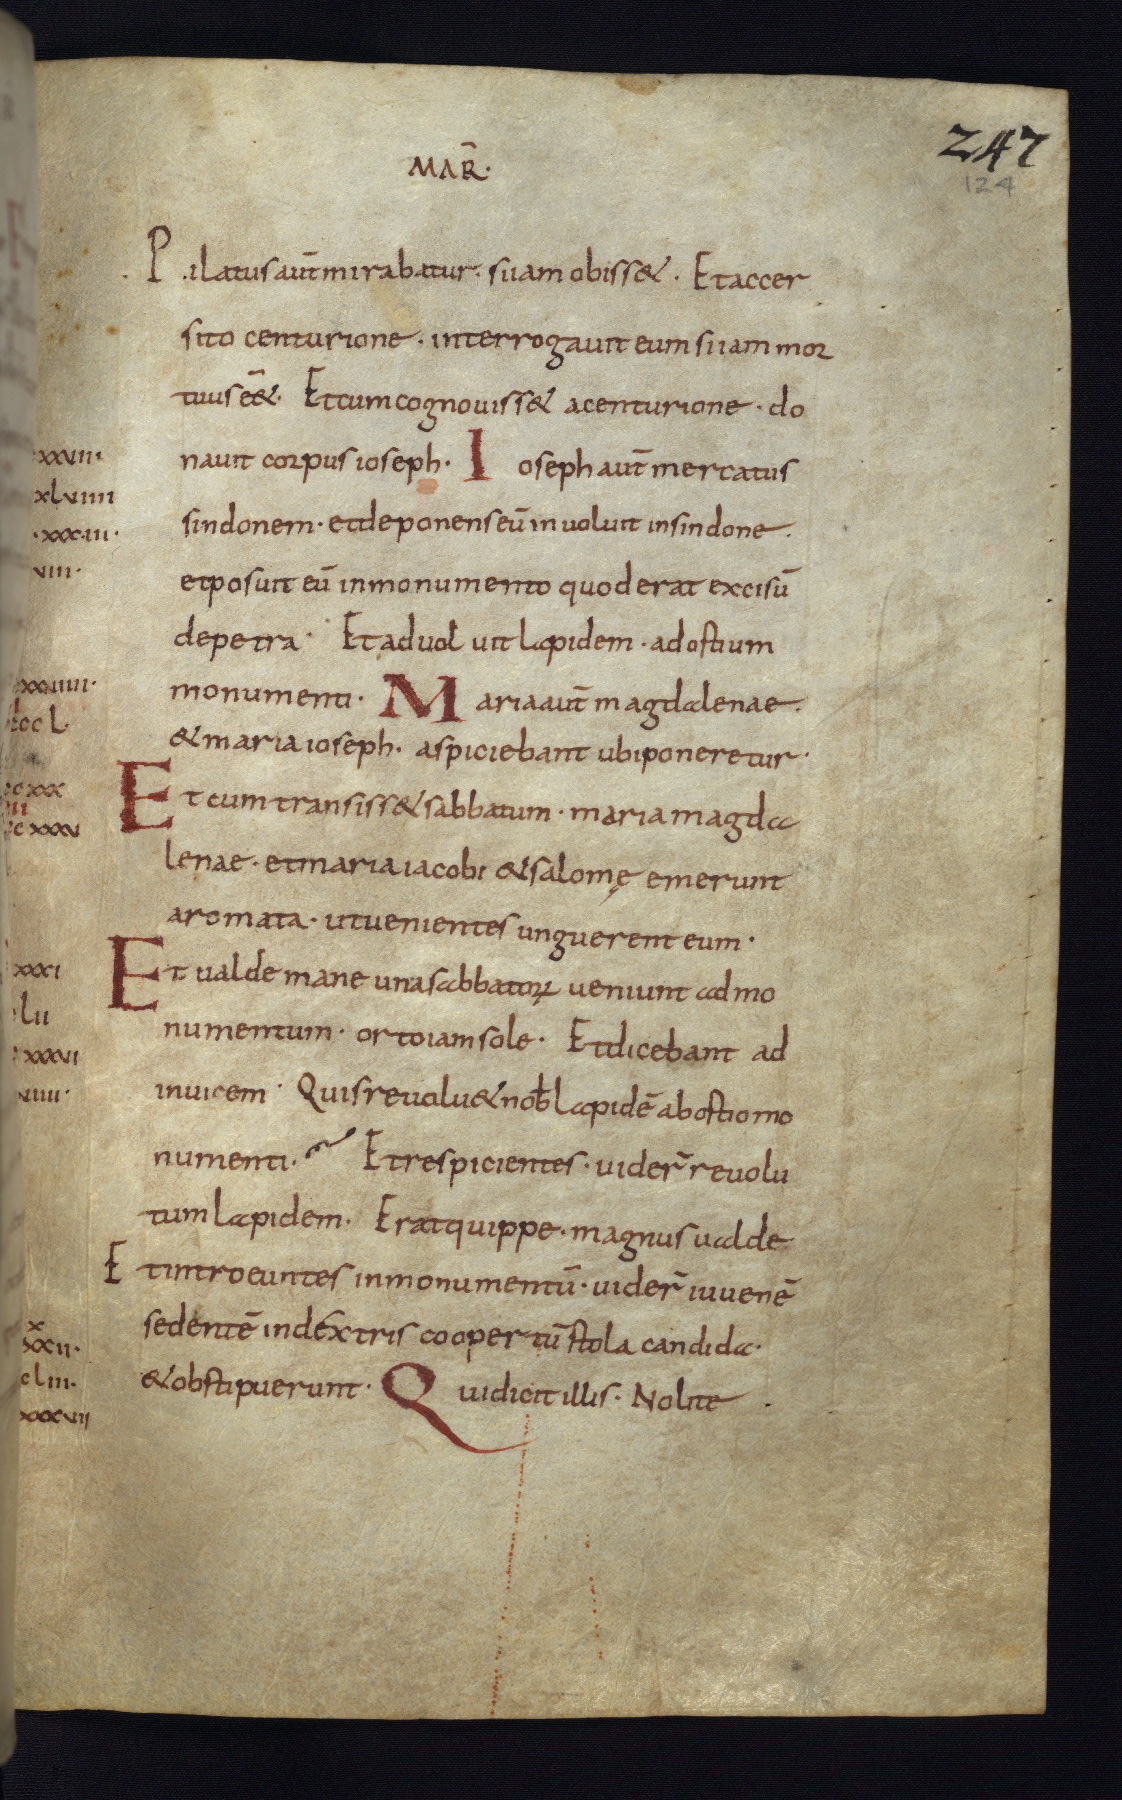 MAR̄·
247
124
Pilatus aut̄ mirabatur· si iam obiss&· Et accer
sito centurione· interrogavit eum si iam mor
tuus eē&· Et cum cognouiss& a centurione· do
nauit corpus ioseph· Ioseph aut̄ mercatus
sindonem· et deponens eū inuoluit in sindone·
et posuit eū in monumento quod erat excisū
de petra· Et aduoluit lapidem· ad ostium
monumenti· Maria aut̄ magdalenae·
& maria ioseph· aspiciebant ubi poneretur·
Et cum transiss& sabbatum· maria magda
lenae· et maria iacobi & salomę emerunt
aromata· ut uenientes unguerent eum·
Et ualde mane una sabbatoꝝ ueniunt ad mo
numentum· orto iam sole· Et dicebant ad
inuicem· Quis reuolu& nob̄ lapidē ab ostio mo
numenti· Et respicientes· uider̄ reuolu
tum lapidem· Erat quippe· magnus ualde
Et introeuntes in monumentū· uider̄ iuuenē
sedentē in dextris coopertū stola candida·
& obstipuerunt· Qui dicit illis· Nolite
xxviii·
xlviiii
·xxxiii·
viii·
xxviiii·
ccl·
cxxx
cxxxv
xxxi
lii
xxxvi
viiii·
x
xxii·
cliii·
xxxvii